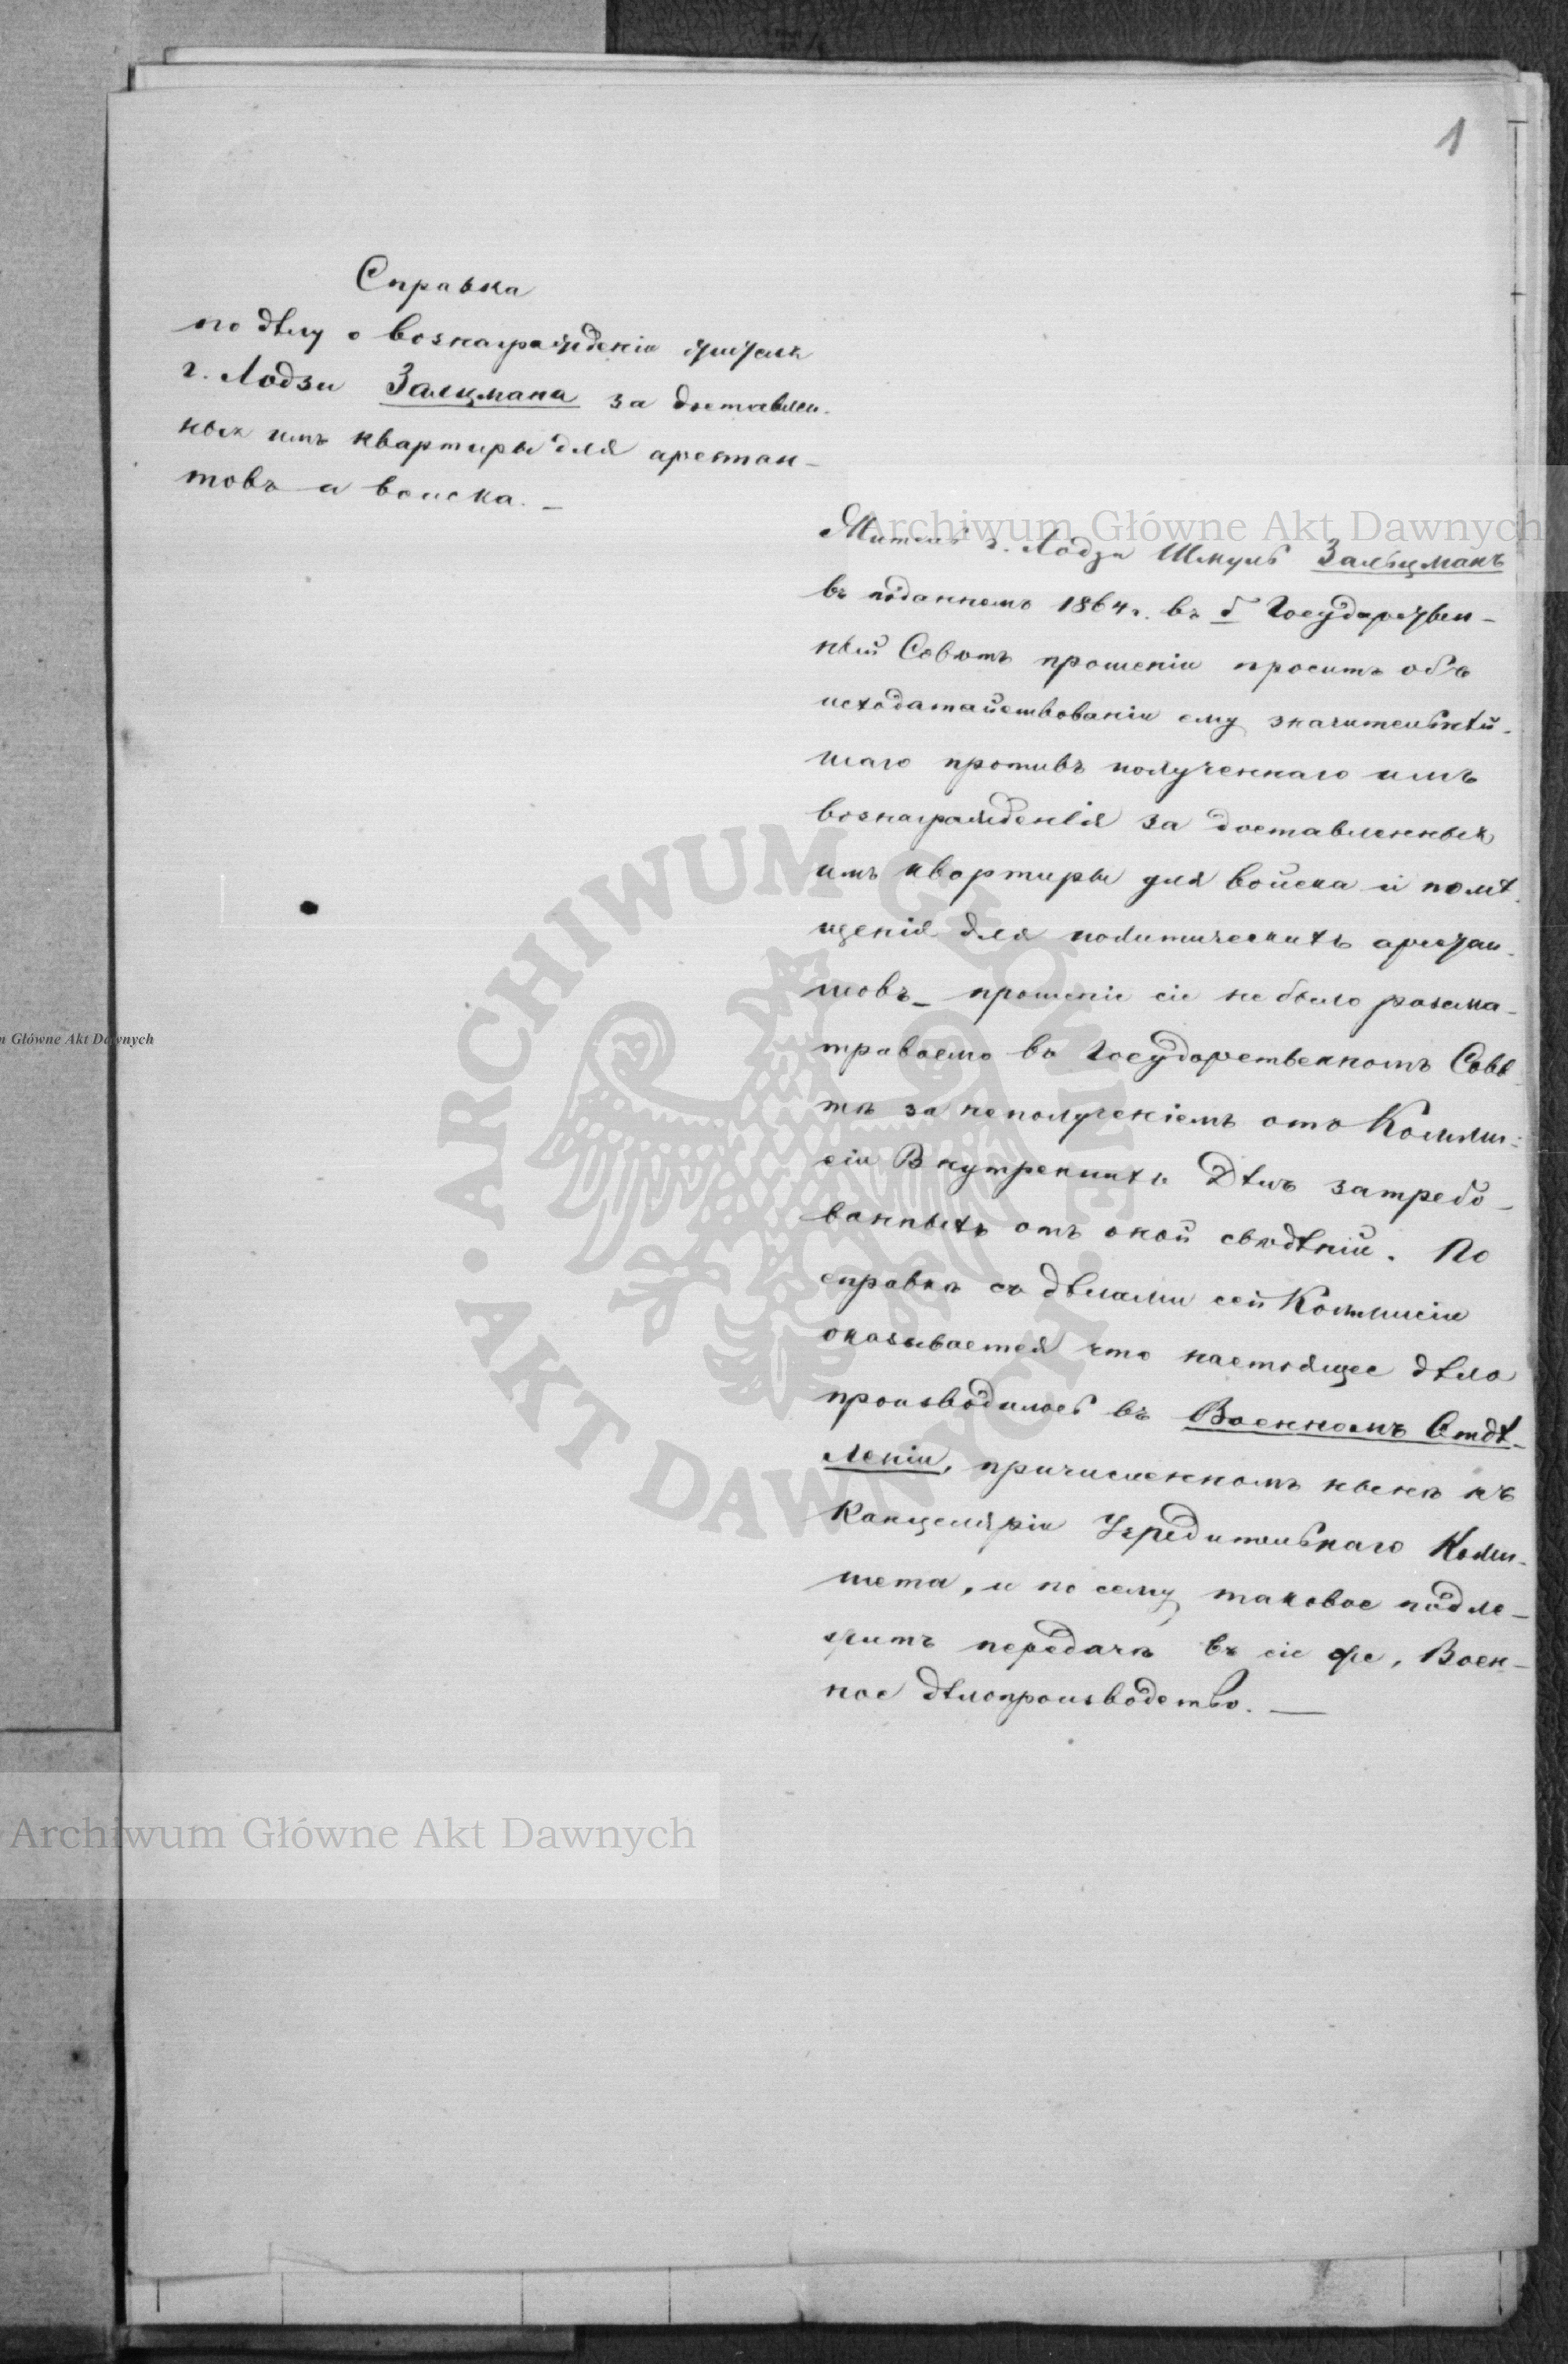 1
Справка
по дѣлу о вознагражденіи жителя
г. Лодзи Залцмана за доставлен-
ныя имъ квартиры для арестан-
товъ и войска. —
Житель г. Лодзи Шмуль Зальцманъ
въ поданномъ 1864 г. въ б. Государствен-
ный Совѣтъ прошеніи проситъ объ
исходатайствованіи ему значительнѣй-
шаго противъ полученнаго имъ
вознагражденія за доставленныя
имъ квартиры для войска и помѣ-
щенія для политическихъ арестан-
товъ – прошеніе сіе не было разсма-
триваемо въ Государственномъ Совѣ-
тѣ за неполученіемъ отъ Комми-
сіи Внутреннихъ Дѣлъ затребо-
ванныхъ отъ оной свѣдѣній. По
справкѣ съ дѣлами сей Коммисіи
оказывается что настоящее дѣло
производилось въ Военномъ Отдѣ-
леніи, причисленномъ нынѣ къ
Канцеляріи Учредительнаго Коми-
тета, и по сему таковое подле-
житъ передачѣ въ сіе же, Воен-
ное дѣлопроизводство. —
Archiwum Główne Akt Dawnych
m Główne Akt Dawnych
ARCHIWUM GŁÓWNE
AKT DAWNYCH
Archiwum Główne Akt Dawnych